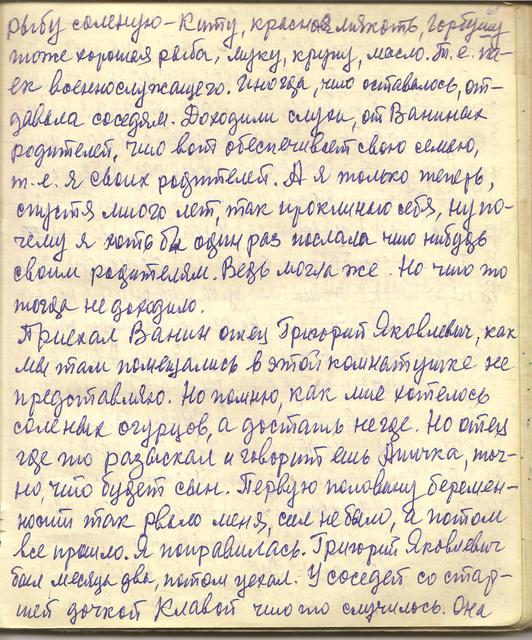 рыбу соленую-Киту, красная мякоть, Горбушу
тоже хорошая рыба, муку, крупу, масло. Т.е. па-
ек военнослужащего. Иногда, что оставалось, от-
давала соседям. Доходили слухи, от Ваниных
родителей, что вот обеспечивает свою семью,
т.е. я своих родителей. А я только теперь,
спустя много лет, так проклинаю себя, ну по-
чему я хоть бы один раз послала что нибудь
своим родителям. Ведь могла же. Но что то
тогда не доходило.
Приехал Ванин отец Григорий Яковлевич, как
мы там помещались в этой комнатушке не
представляю. Но помню, как мне хотелось
соленых огурцов, а достать негде. Но отец
где то разыскал и говорит ешь Аничка, точ-
но что будет сын. Первую половину беремен-
ности так рвало меня, сил не было, а потом
все прошло. Я поправилась. Григорий Яковлевич
был месяца два, потом уехал. У соседей со стар-
шей дочкой Клавой что то случилось. Она